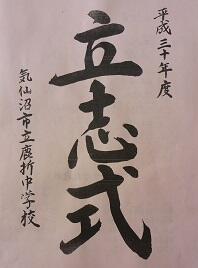 平成三十年度
立志式
気仙沼市立鹿折中学校